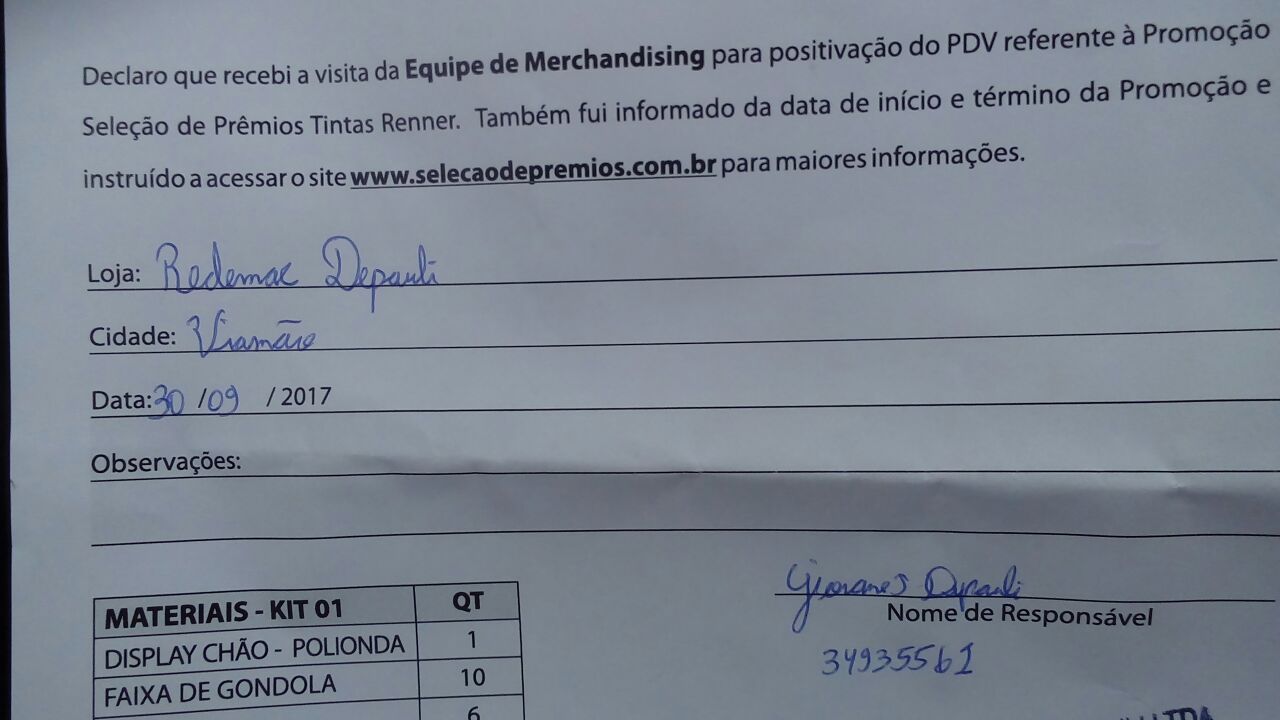 Declaro que recebi a visita da Equipe de Merchandising para positivação do PDV referente à Promoção
Seleção de Prêmios Tintas Renner. Também fui informado da data de início e término da Promoção e
instruído a acessar o site www.selecaodepremios.com.br para maiores informações.
Loja: Redemac Depauli
Cidade: Viamão
Data: 30 /09 / 2017
Observações:
MATERIAIS - KIT 01 QT
DISPLAY CHÃO - POLIONDA 1
FAIXA DE GONDOLA 10
6
Depauli
Nome de Responsável
34935561
LTDA